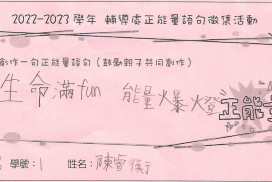 2022-2023 學年 輔導處正能量語句徵集活動
創作一句正能量語句（鼓勵親子共同創作）
生命滿fun 能量爆燈
正能量
學號：1 姓名：陳睿